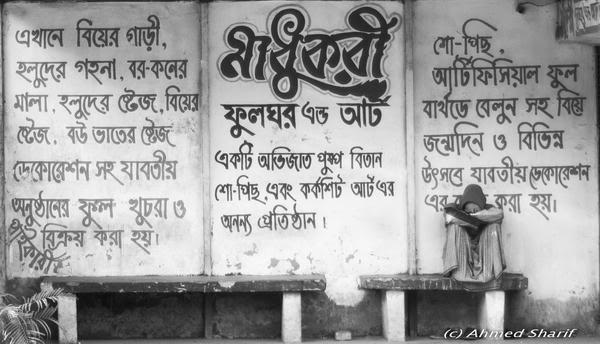 এখানে বিয়ের গাড়ী,
হলুদের গহনা, বর-কনের
মালা, হলুদের ষ্টেজ, বিয়ের
ষ্টেজ, বউ ভাতের ষ্টেজ
ডেকোরেশন সহ যাবতীয়
অনুষ্ঠানের ফুল খুচরা ও
বিক্রয় করা হয়।
মাধুকরী
ফুলঘর এন্ড আর্ট
একটি অভিজাত পুষ্প বিতান
শো-পিছ, এবং কর্কশিট আর্ট এর
অনন্য প্রতিষ্ঠান।
শো-পিছ,
আর্টিফিসিয়াল ফুল
বার্থডে বেলুন সহ বিয়ে
জন্মদিন ও বিভিন্ন
উৎসবে যাবতীয় ডেকোরেশন
এর করা হয়।
(c) Ahmed Sharif